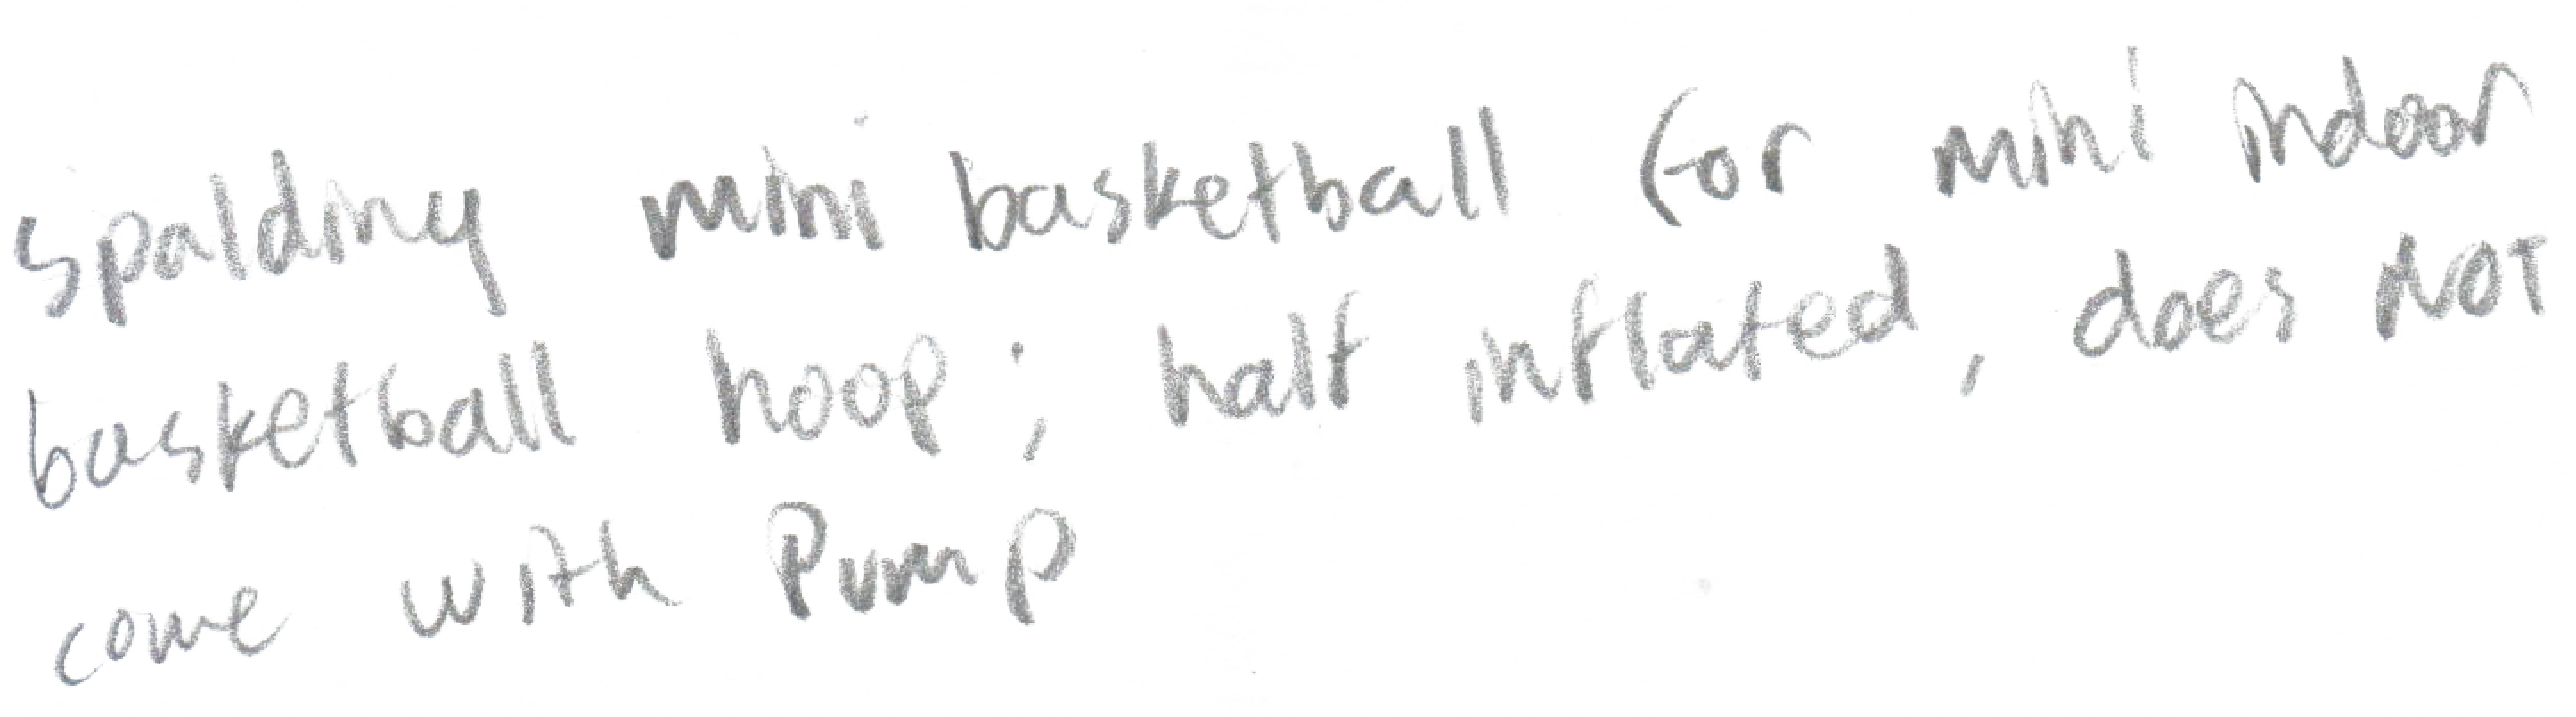 spalding mini basketball for mini indoor
basketball hoop; half inflated, does NOT
come with pump